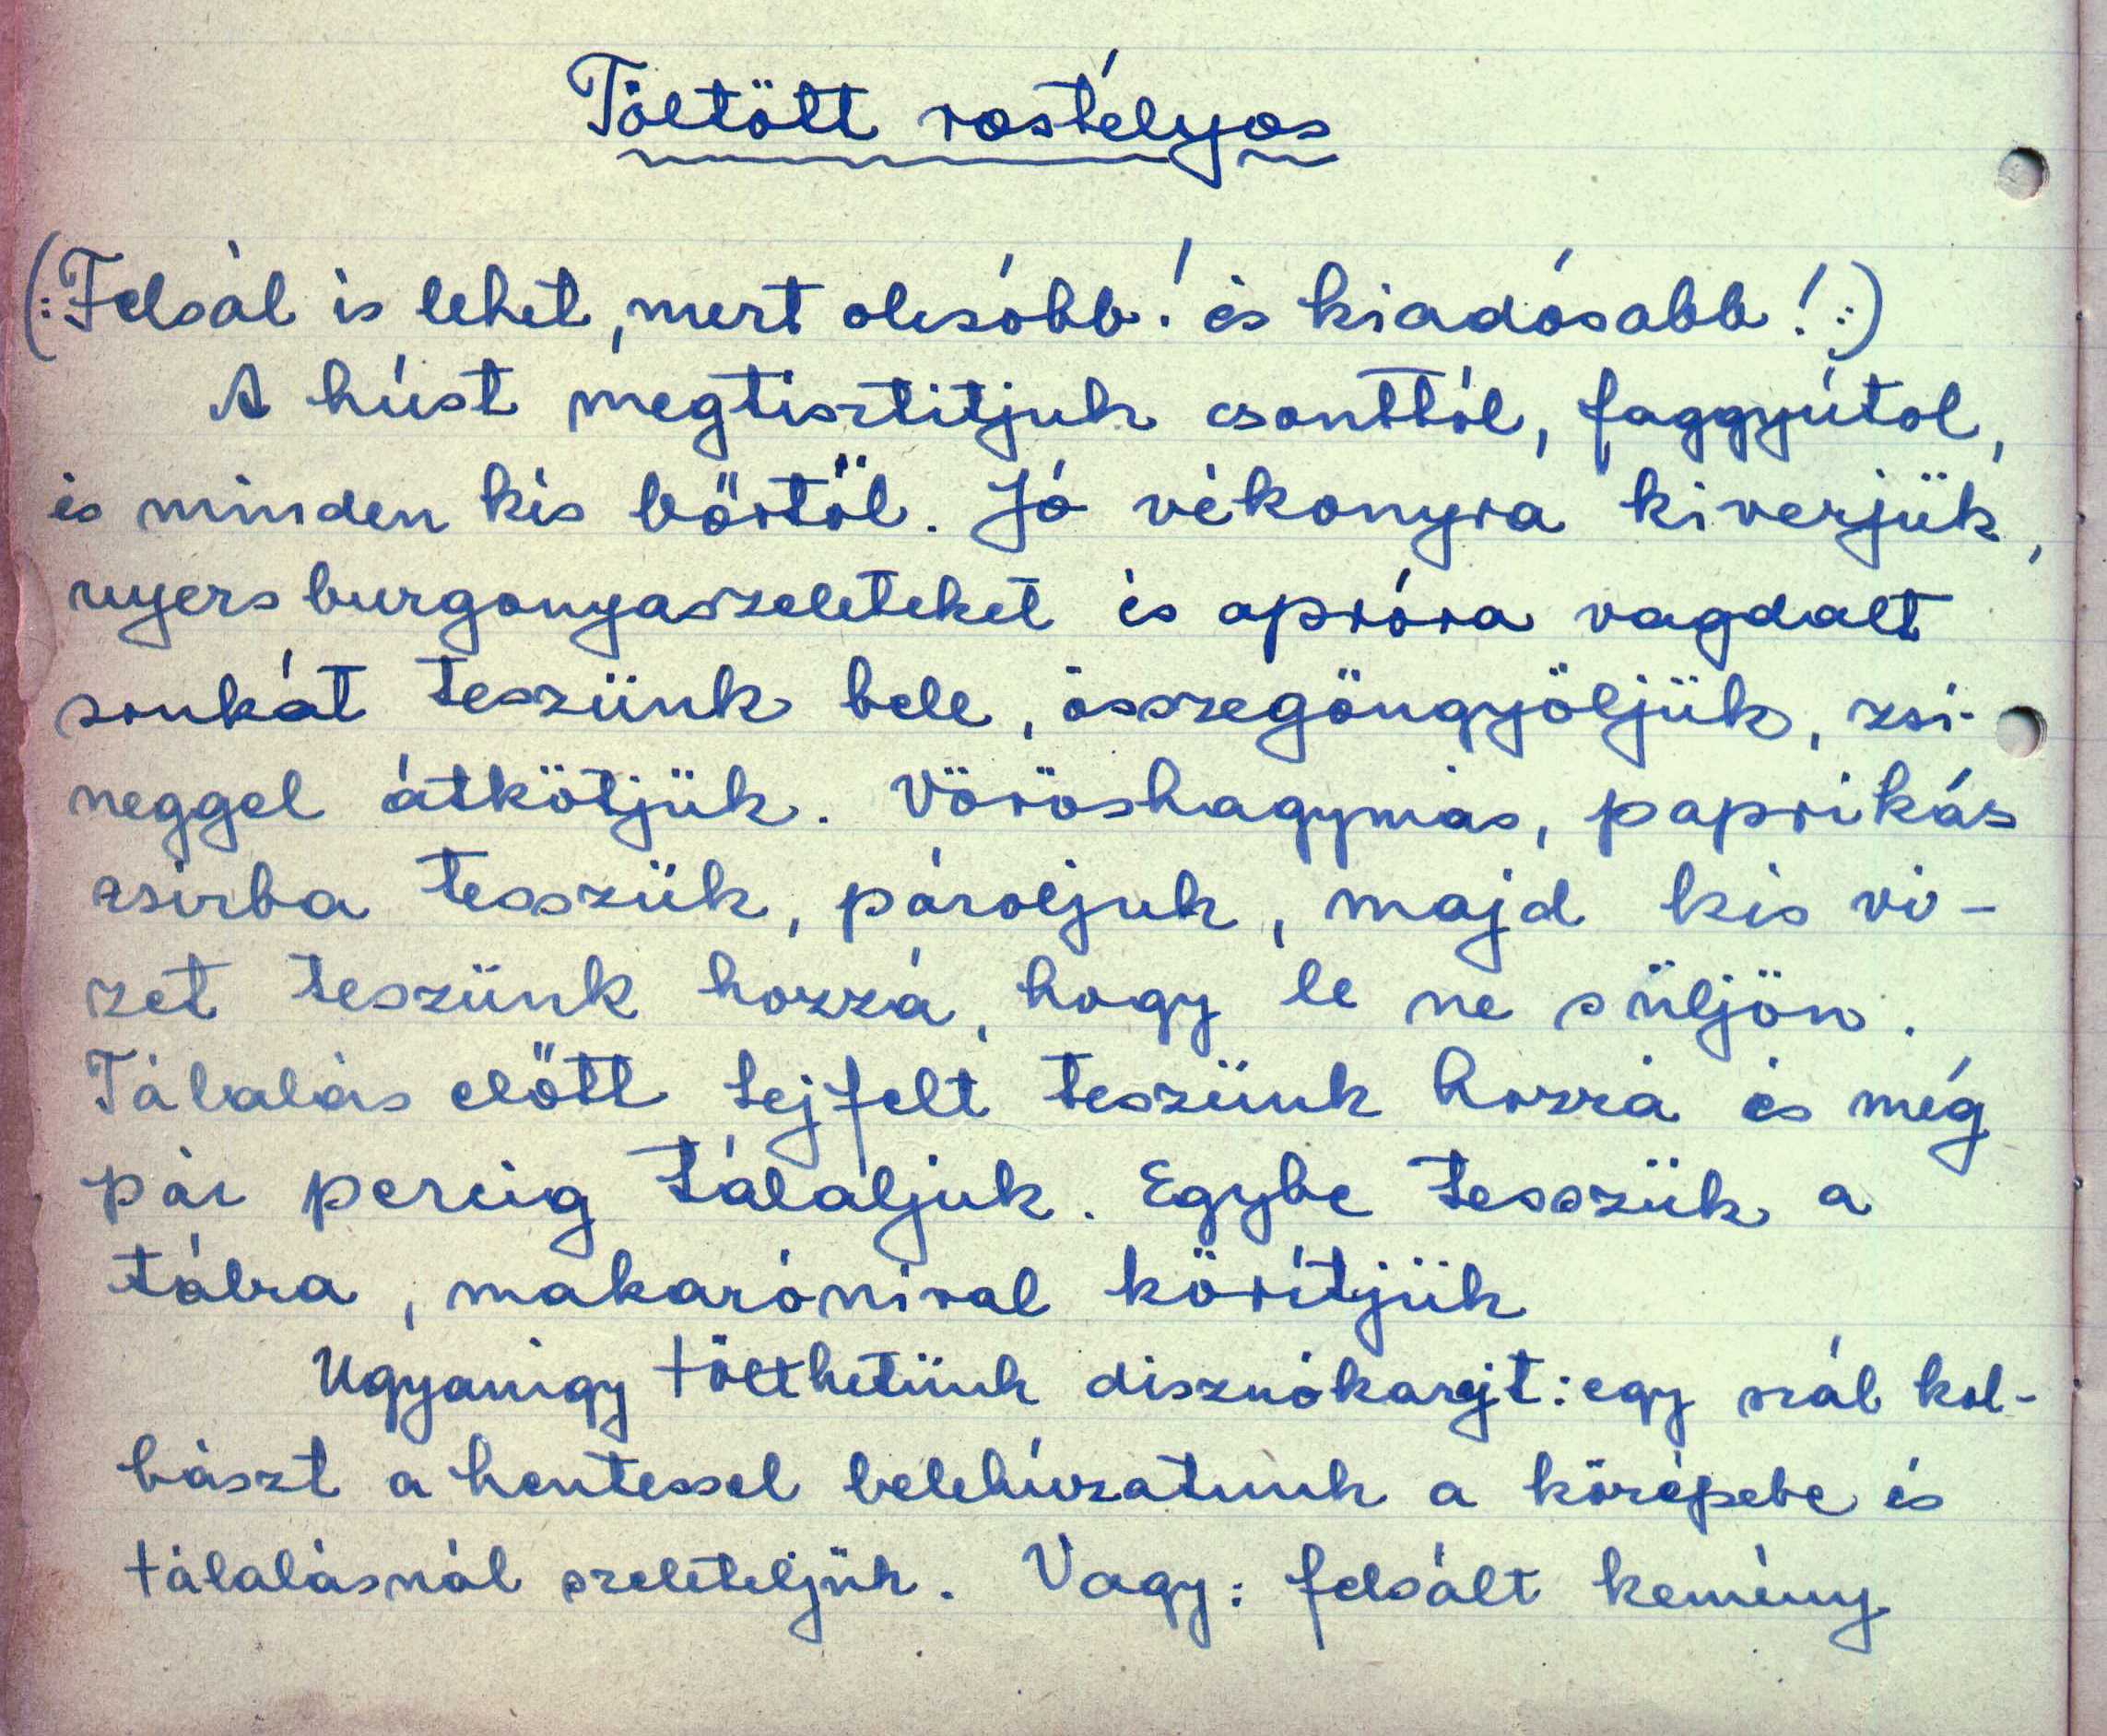 Töltött rostélyos
(:Felsál is lehet, mert olcsóbb! és kiadósabb!:)
A húst megtisztitjuk csonttól, faggyútol,
és minden kis bőrtől. Jó vékonyra kiverjük,
nyers burgonyaszeleteket és apróra vagdalt
sonkát teszünk bele, összegöngyöljük, zsi-
neggel átkötjük. Vöröshagymás, paprikás
zsirba tesszük, pároljuk, majd kis vi-
zet teszünk hozzá, hogy le ne süljön.
Tálalás előtt tejfelt teszünk hozzá és még
pár percig tálaljuk. Egybe tesszük a
tálra, makarónival körítjük
Ugyanigy tölthetünk disznókarajt: egy szál kol-
bászt a hentessel belehúzatunk a közepébe és
tálalásnál szeleteljük. Vagy: felsált kemény